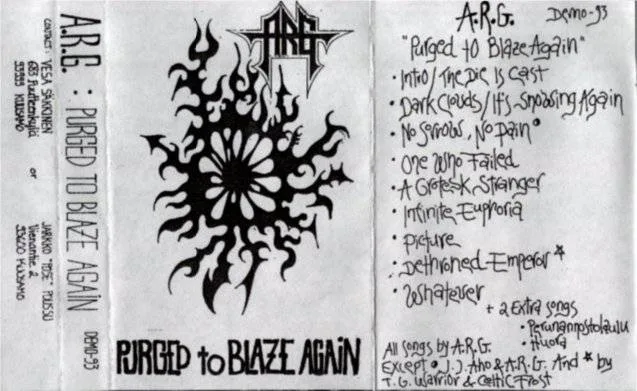 CONTACT: VESA SÄKKINEN
683
93999 KUUSAMO
or
JARKKO "POSE" POUSSU
Vienantie 2
93600 KUUSAMO
A.R.G. : PURGED TO BLAZE AGAIN DEMO-93
ARG
PURGED to BLAZE AGAiN
A.R.G. Demo-93
"Purged to Blaze Again"
· Intro / The Die Is Cast
· Dark Clouds / It's Snowing Again
· No Sorrows, No Pain •
· One Who Failed
· A Grotesk Stranger
· Infinite Euphoria
· Picture
· Dethroned Emperor *
· Whatever
+ 2 Extra songs
· Perunannostolaulu
· Huora
All songs by A.R.G.
Except • J.J. Aho & A.R.G. And * by
T.G. Warrior & Celtic Frost